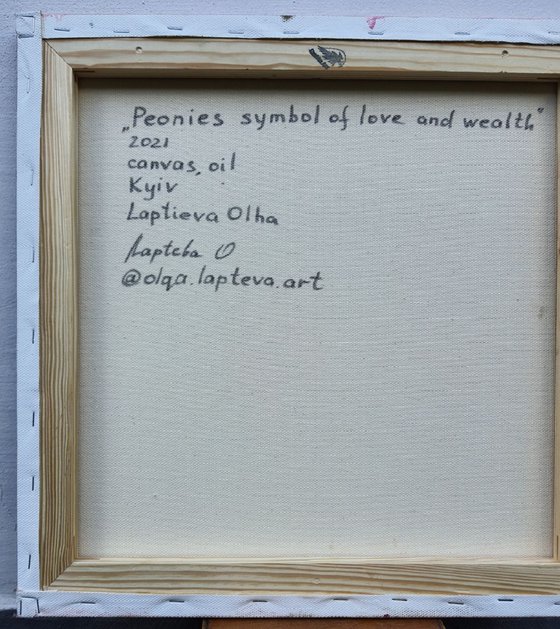 „Peonies symbol of love and wealth"
2021
canvas, oil
Kyiv
Laptieva Olha
Лаптєва О
@olga.lapteva.art